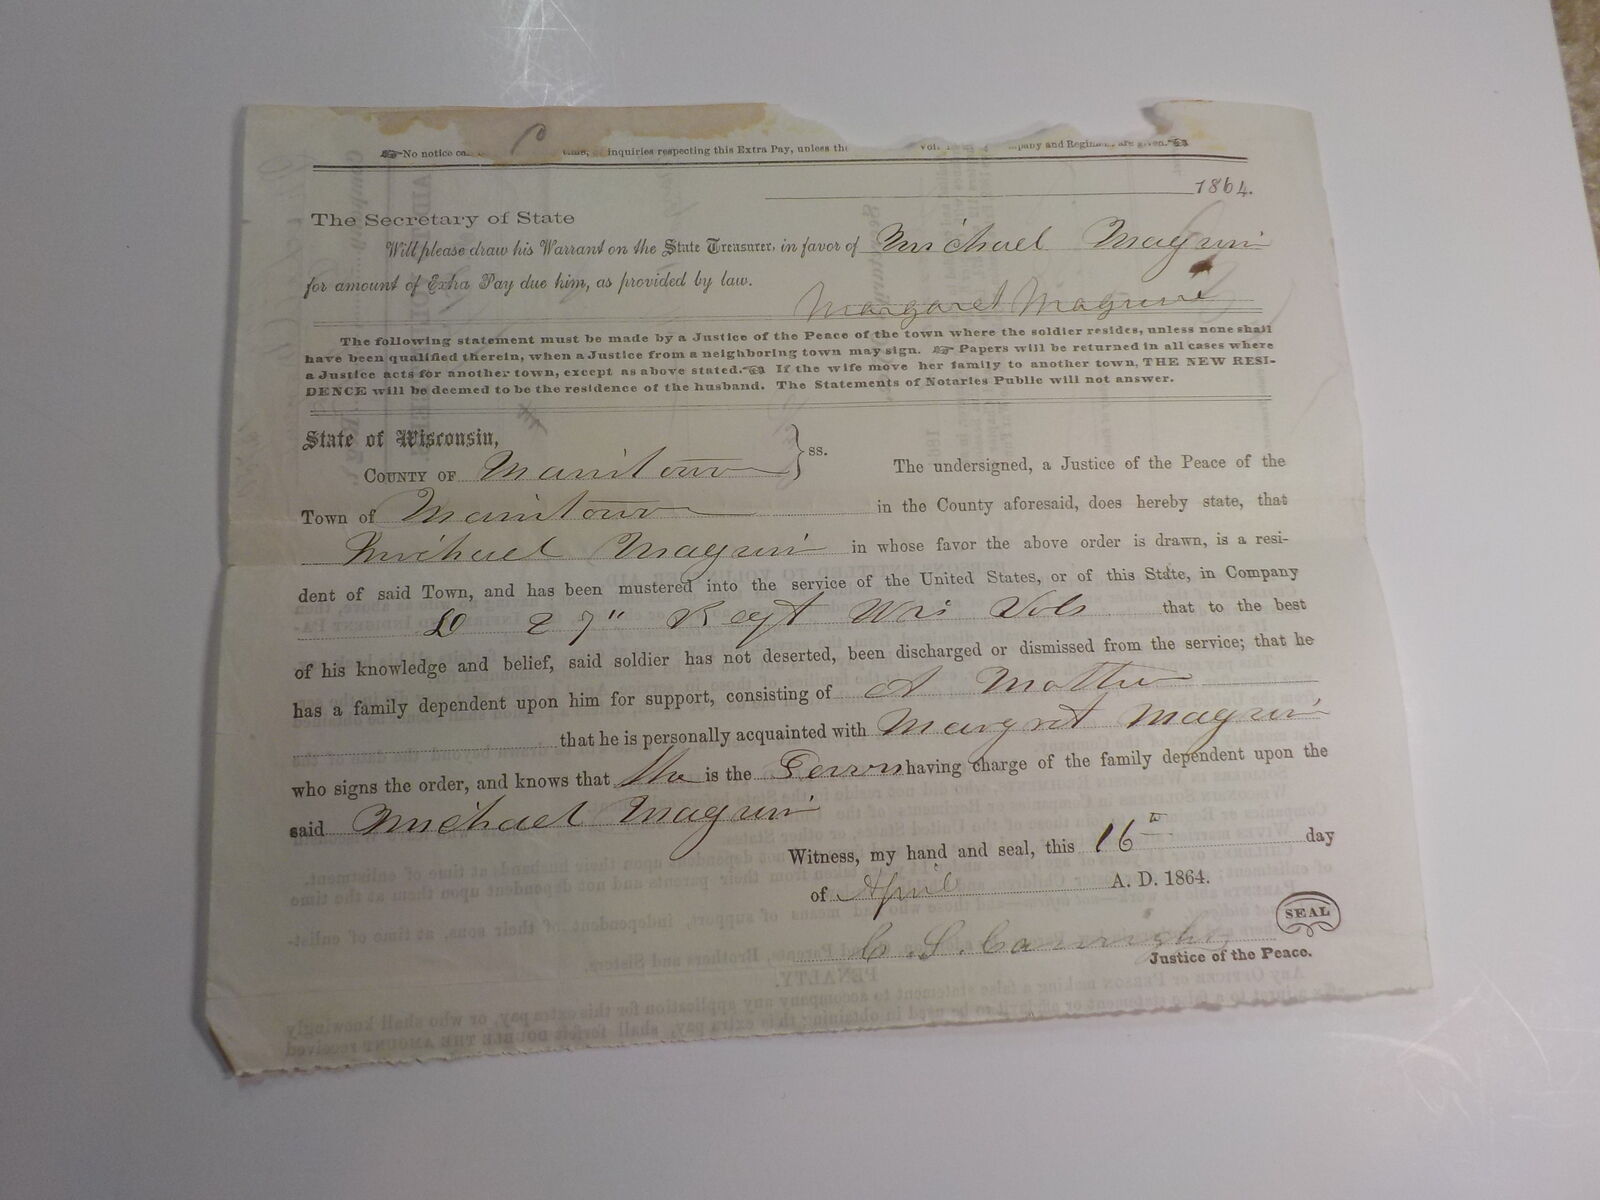 No notice inquiries respecting this Extra Pay, unless and are given.
1864.
The Secretary of State
Will please draw his Warrant on the State Treasurer, in favor of Michael Maguri
for amount of Extra Pay due him, as provided by law.
Margaret Maguire
The following statement must be made by a Justice of the Peace of the town where the soldier resides, unless none shall
have been qualified therein, when a Justice from a neighboring town may sign. ☞ Papers will be returned in all cases where
a Justice acts for another town, except as above stated.☜ If the wife move her family to another town, THE NEW RESI-
DENCE will be deemed to be the residence of the husband. The Statements of Notaries Public will not answer.
State of Wisconsin, } ss.
COUNTY OF Manitowoc The undersigned, a Justice of the Peace of the
Town of Manitowoc in the County aforesaid, does hereby state, that
Michael Maguri in whose favor the above order is drawn, is a resi-
dent of said Town, and has been mustered into the service of the United States, or of this State, in Company
D 27" Regt Wis Vols that to the best
of his knowledge and belief, said soldier has not deserted, been discharged or dismissed from the service; that he
has a family dependent upon him for support, consisting of A Mother
that he is personally acquainted with Margret Maguri
who signs the order, and knows that She is the Person having charge of the family dependent upon the
said Michael Maguri
Witness, my hand and seal, this 16th day
of April A. D. 1864.
C. S. SEAL
Justice of the Peace.